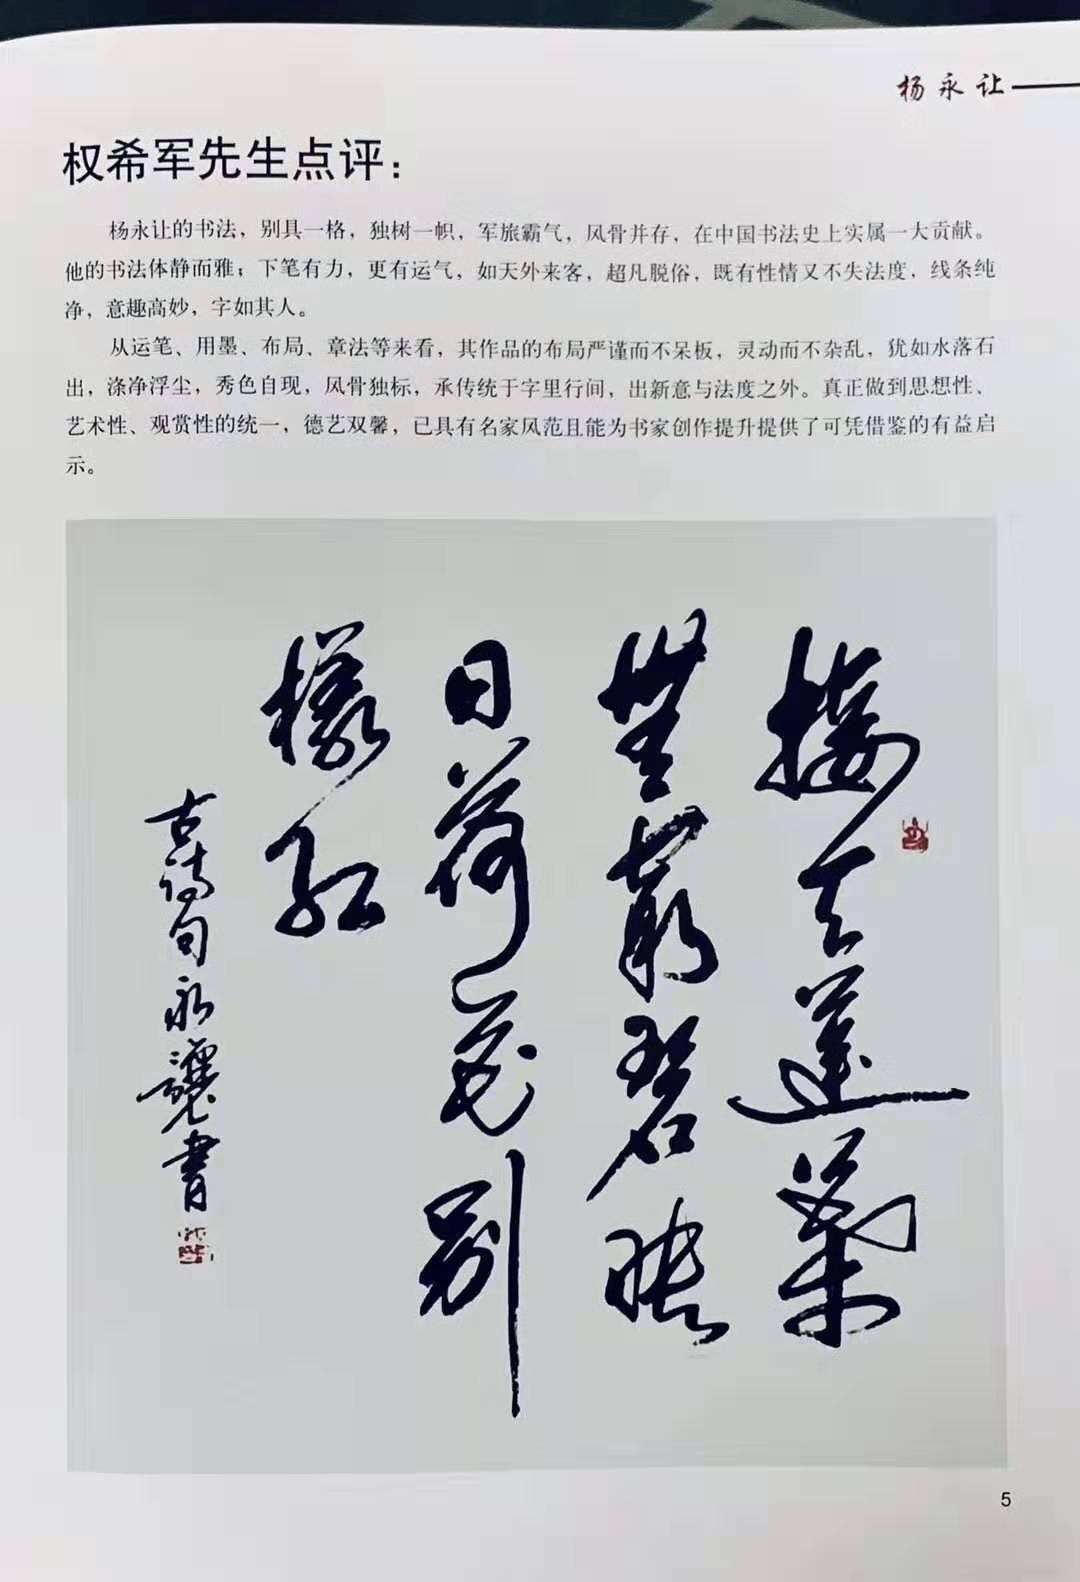 杨永让
权希军先生点评：
杨永让的书法，别具一格，独树一帜，军旅霸气，风骨并存，在中国书法史上实属一大贡献。
他的书法体静而雅；下笔有力，更有运气，如天外来客，超凡脱俗，既有性情又不失法度，线条纯
净，意趣高妙，字如其人。
从运笔、用墨、布局、章法等来看，其作品的布局严谨而不呆板，灵动而不杂乱，犹如水落石
出，涤净浮尘，秀色自现，风骨独标，承传统于字里行间，出新意与法度之外。真正做到思想性、
艺术性、观赏性的统一，德艺双馨，已具有名家风范且能为书家创作提升提供了可凭借鉴的有益启
示。
接天莲叶
无穷碧映
日荷花别
樣红
古诗句永讓書
5